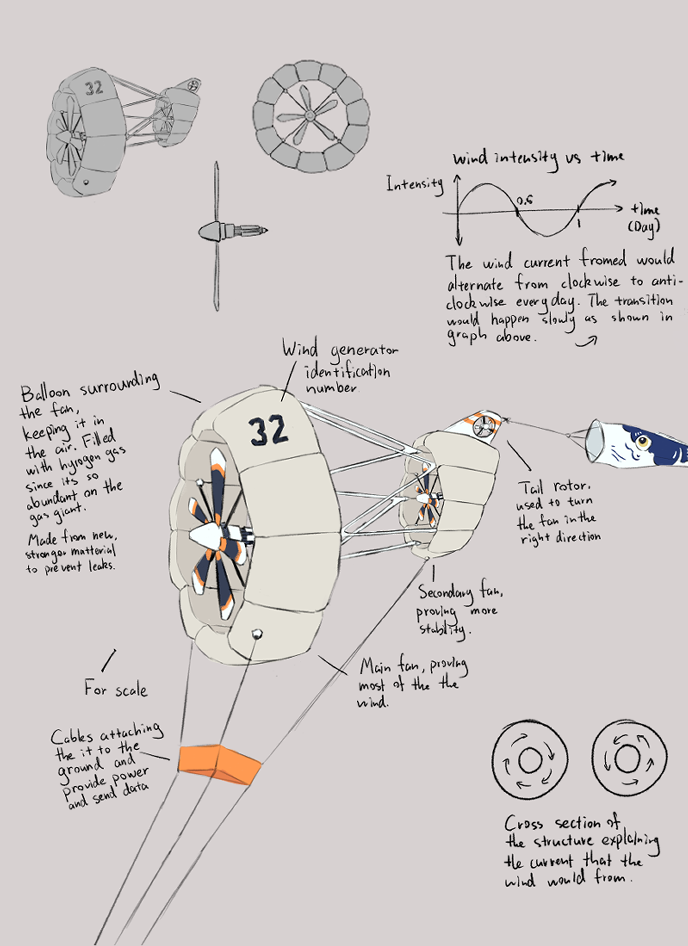 32
Wind intensity vs time
Intensity
0.5
1
time
(Day)
The wind current fromed would
alternate from clockwise to anti-
clockwise everyday. The transition
would happen slowly as shown in
graph above.
Wind generator
identification
number.
Balloon surrounding
the fan,
keeping it in
the air. Filled
with hyrogen gas
since its so
abundant on the
gas giant.
Made from new,
stronger matterial
to prevent leaks.
32
Tail rotor,
used to turn
the fan in the
right direction
Secondary fan,
proving more
stability.
Main fan, proving
most of the the
wind.
For scale
Cables attaching
the it to the
ground and
provide power
and send data
Cross section of
the structure explaining
the current that the
wind would from.